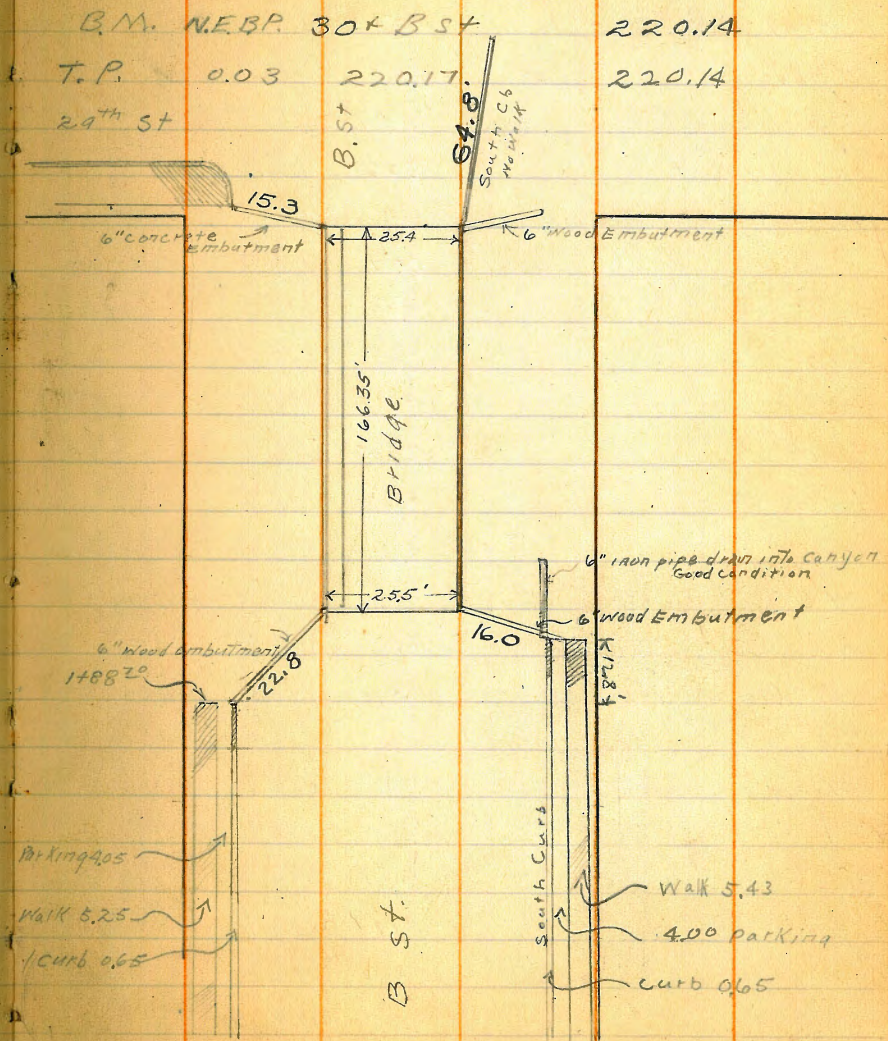 B.M. N.E.B.P. 30th B St 220.14
T.P. 0.03 220.17 220.14
29th St
B. St
64.8
South Cb
No Walk
15.3
6" concrete Embutment
25.4
6" Wood Embutment
166.35'
Bridge
6" iron pipe drain into Canyon
Good Condition
25.5'
6" Wood Embutment
16.0
6" Wood embutment
22.8
1+88 20
Parking 4.05
Walk 5.25
Curb 0.65
B St.
South Curb
Walk 5.43
4.00 Parking
Curb 0.65